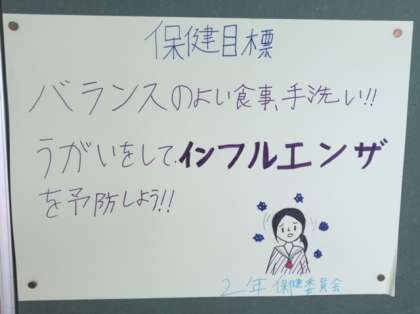 保健目標
バランスのよい食事、手洗い!!
うがいをして、インフルエンザ
を予防しよう!!
2年 保健委員会